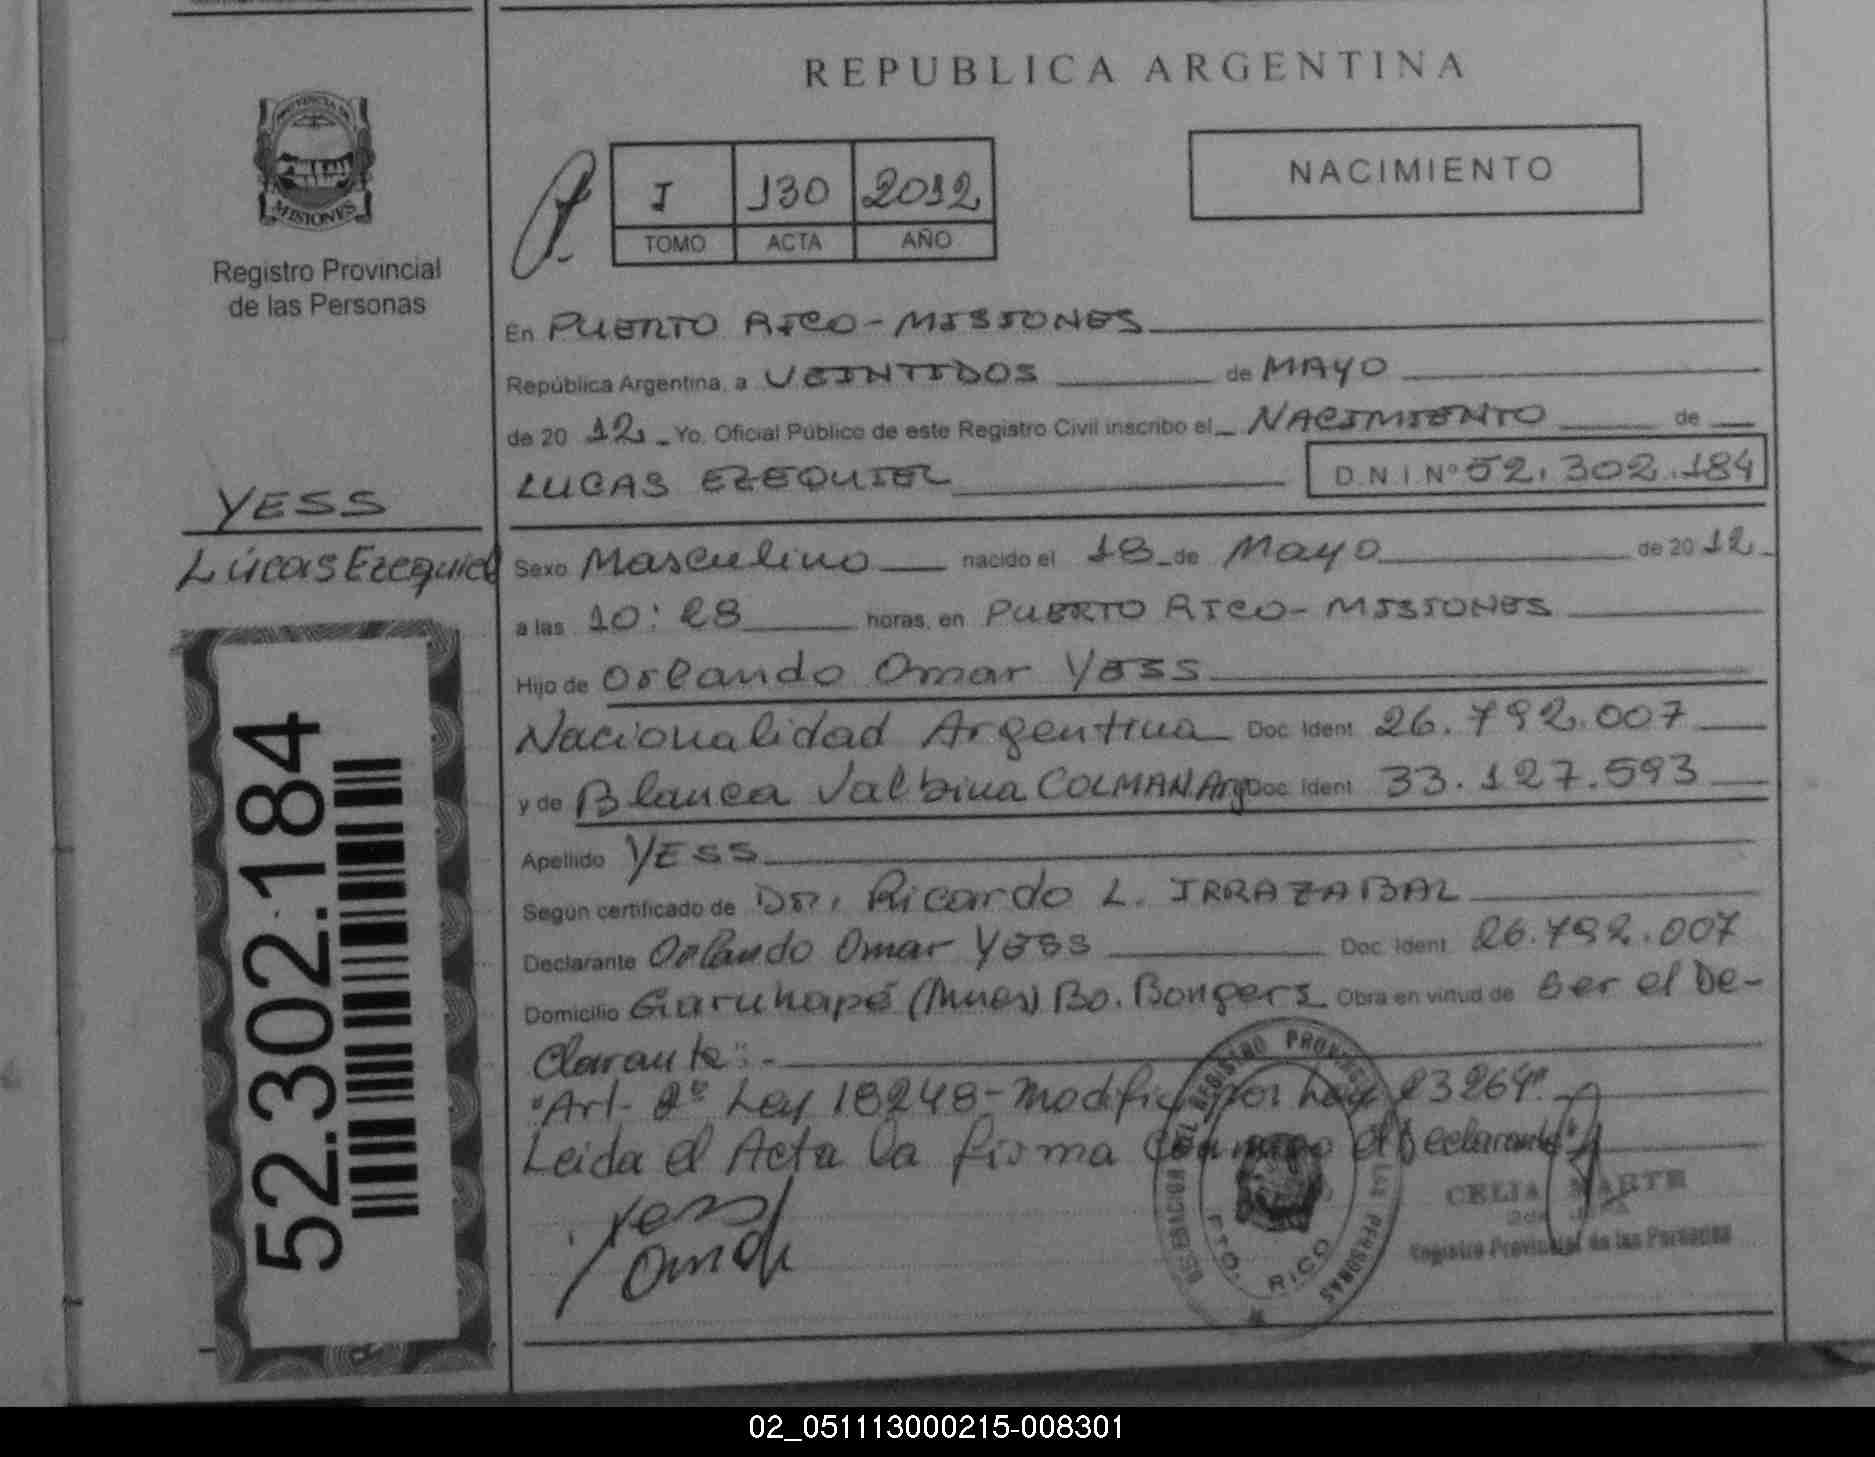 REPUBLICA ARGENTINA
PROVINCIA DE
MISIONES
Registro Provincial
de las Personas
I 130 2012
TOMO ACTA AÑO
NACIMIENTO
En PUERTO RICO - MISIONES
República Argentina, a VEINTIDOS de MAYO
de 20 12 Yo, Oficial Público de este Registro Civil inscribo el NACIMIENTO de
LUCAS EZEQUIEL D.N.I. Nº 52.302.184
YESS
Lúcas Ezequiel
Sexo Masculino nacido el 18 de Mayo de 20 12
a las 10:28 horas, en PUERTO RICO - MISIONES
Hijo de Orlando Omar YESS
Nacionalidad Argentina Doc. Ident. 26.792.007
y de Blanca Valbina COLMAN Arg Doc. Ident. 33.127.593
Apellido YESS
Según certificado de Dr. Ricardo L. IRRAZABAL
Declarante Orlando Omar YESS Doc. Ident. 26.792.007
Domicilio Garuhapé (Mnes) Bo. Bongers Obra en virtud de Ser el De-
clarante".-
"Art. 2º Ley 18248 - modific por Ley 23264".
Leida el Acta la firma conmigo el Declarante"
52.302.184
Yess
Omar
REGISTRO PROVINCIAL DE LAS PERSONAS
PTO. RICO
CELIA MARTE
Registro Provincial de las Personas
02_051113000215-008301